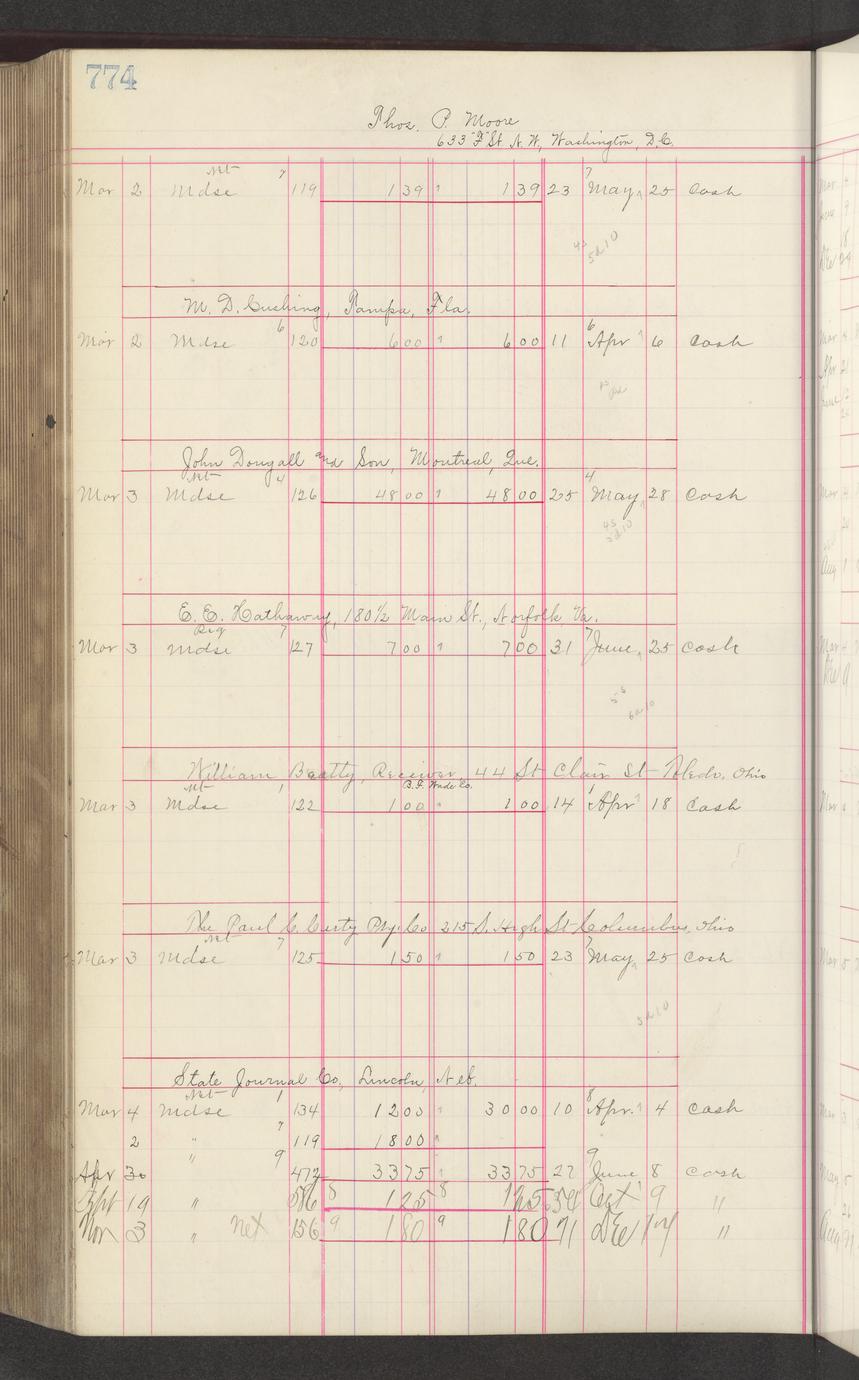 774
Thos. P. Moore
633 "F" St. N.W., Washington, D.C.
Net 7 7
Mar 2 Mdse 119 1 39 1 39 23 May 25 Cash
45
5d10
M. D. Cushing, Tampa, Fla.
6 6
Mar 2 Mdse 120 6 00 6 00 11 Apr 6 Cash
John Dougall and Son, Montreal, Que.
Net 4 4
Mar 3 Mdse 126 48 00 48 00 25 May 28 Cash
45
5d10
E. E. Hathaway, 180 1/2 Main St., Norfolk, Va.
Reg 7 7
Mar 3 Mdse 127 7 00 7 00 31 June 25 Cash
6d10
William Beatty, Receiver, 44 St Clair St Toledo, Ohio
Net 1 B.F. Wade Co. 1
Mar 3 Mdse 122 1 00 1 00 14 Apr 18 Cash
The Paul C. 215 S. High St Columbus, Ohio
Net 7 7
Mar 3 Mdse 125 1 50 1 50 23 May 25 Cash
5d10
State Journal Co., Lincoln, Neb.
Net 1 8
Mar 4 Mdse 134 12 00 30 00 10 Apr. 4 Cash
7
2 " 119 18 00
" 9 9
Apr 30 472 33 75 33 75 27 June 8 Cash
Sept 19 " 586 8 1 25 8 1 25 54 Oct 9 "
Nov 3 " Net 156 9 1 80 9 1 80 71 Dec 14 "